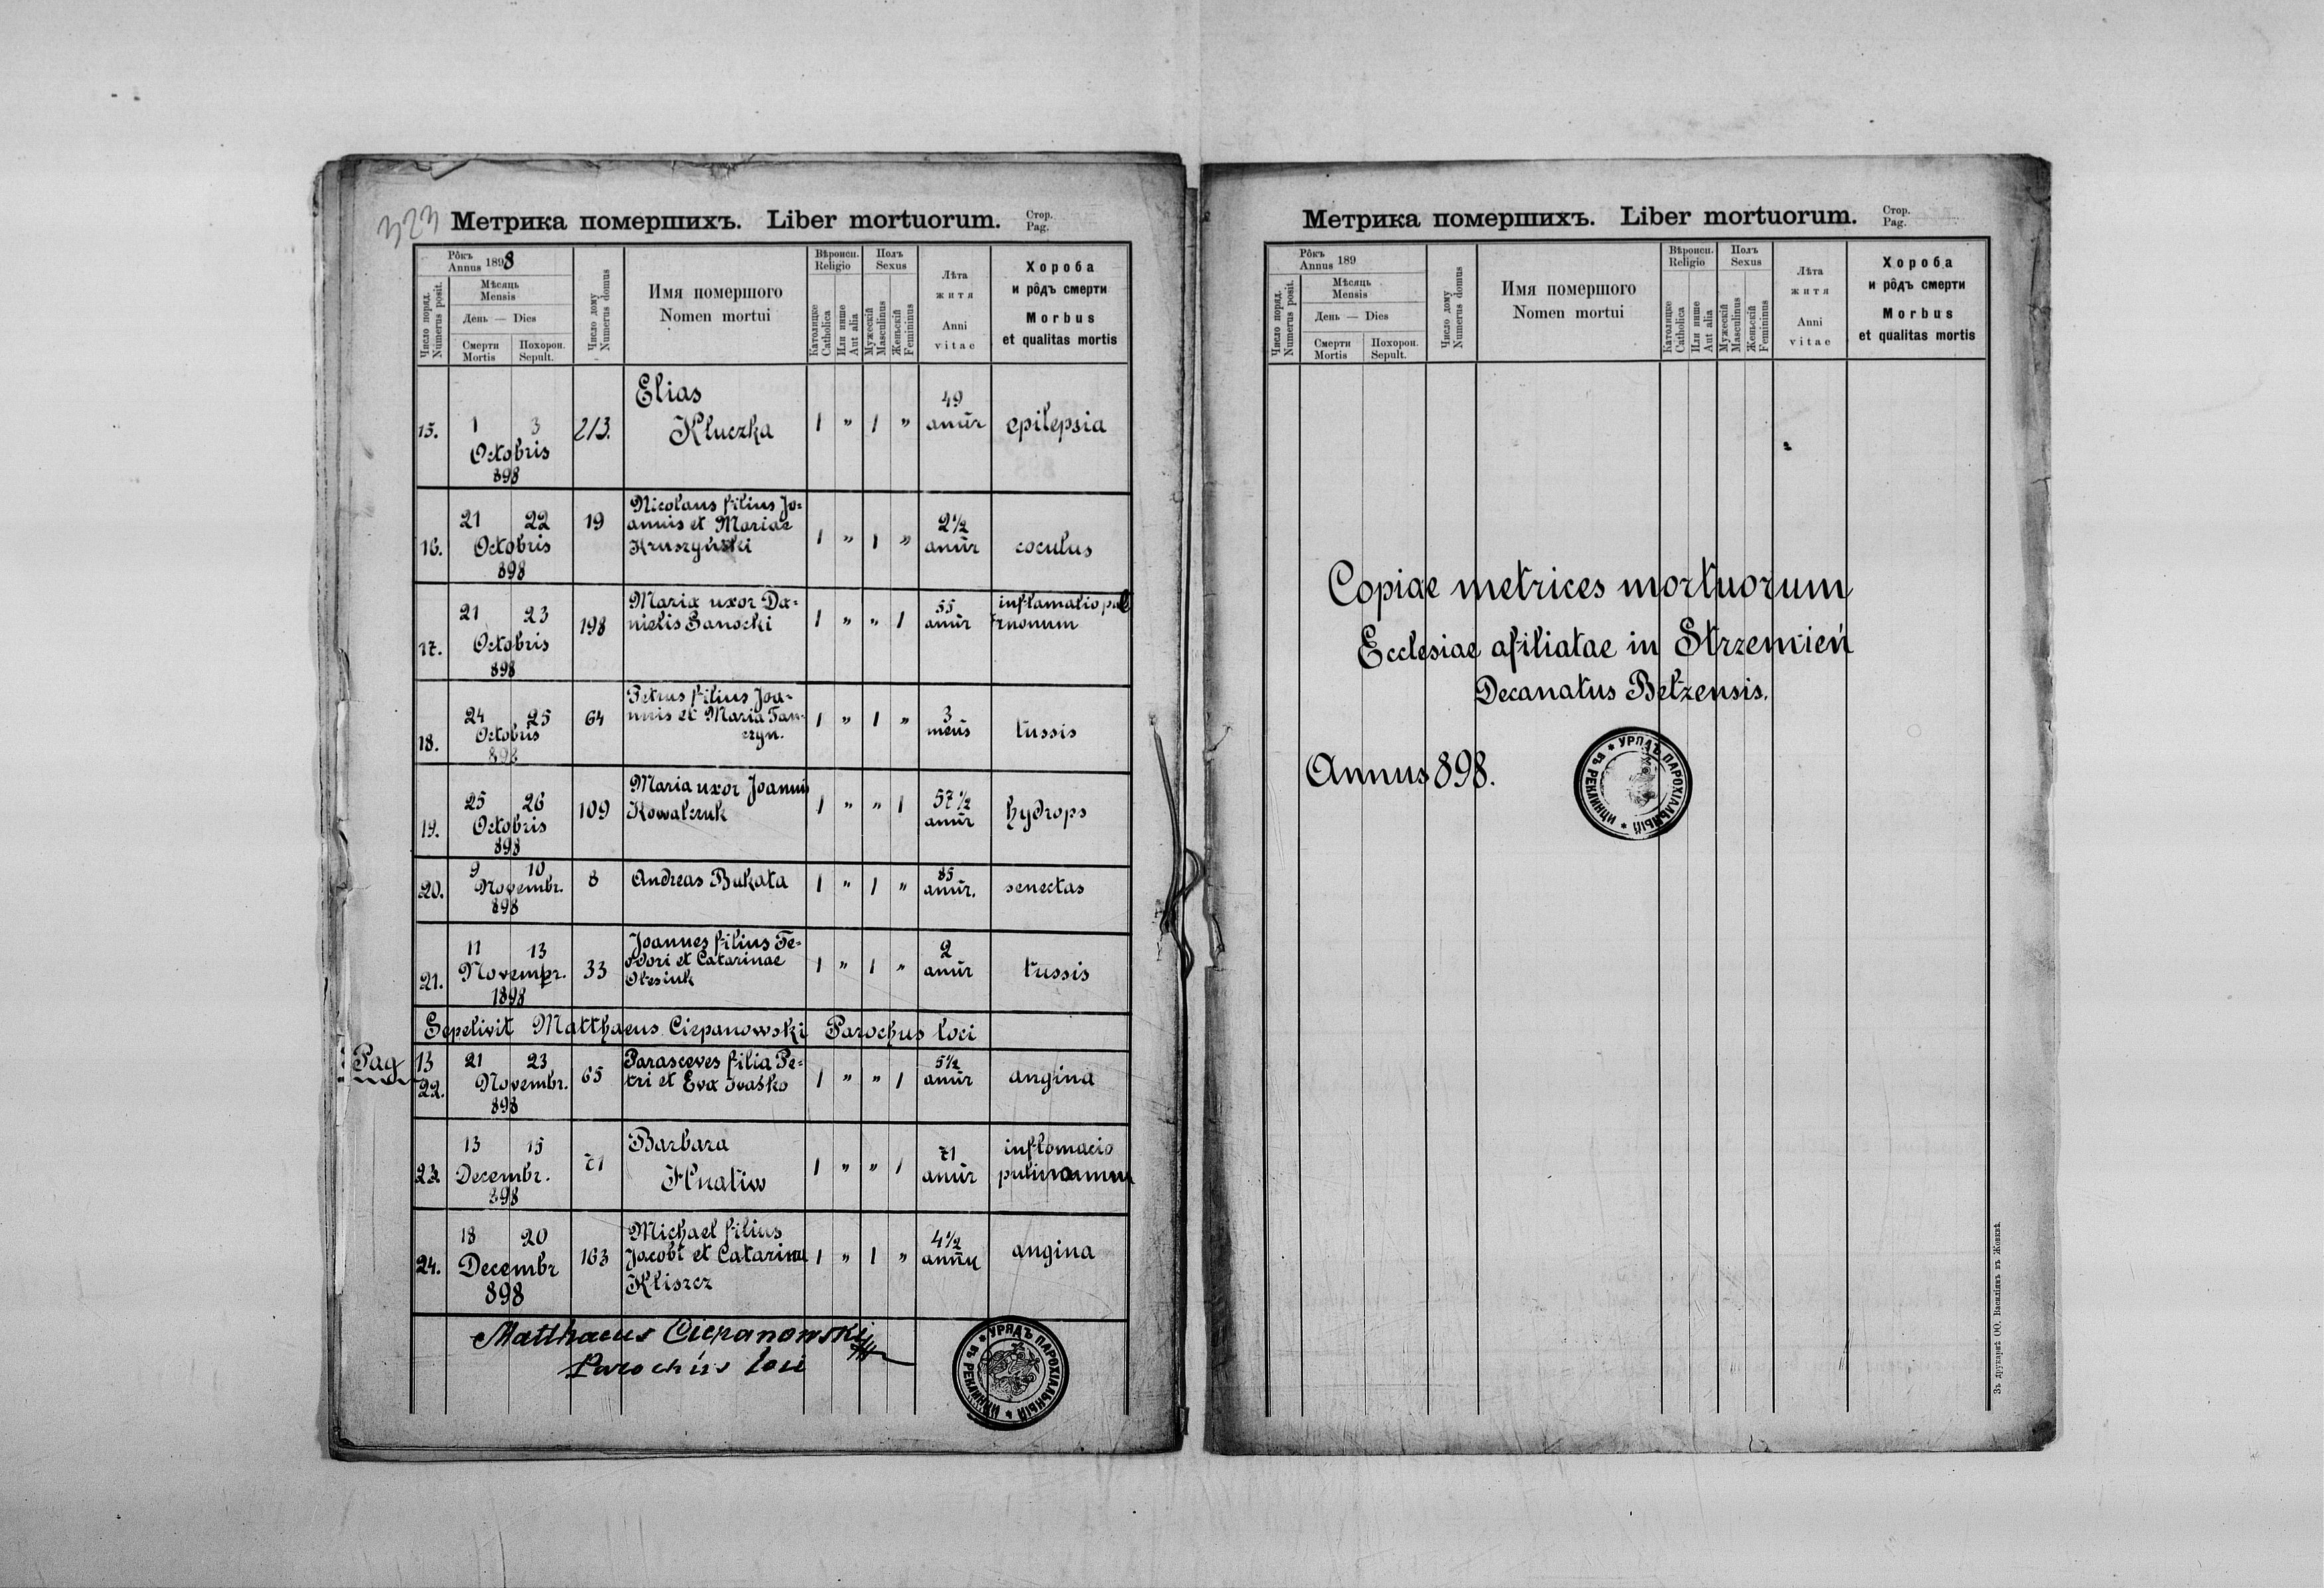 323
Метрика помершихъ. Liber mortuorum.
Стор.
Pag.
Рôкъ
Annus 1898
Число поряд.
Numerus posit.
Мѣсяць
Mensis
День — Dies
Смерти
Mortis
Похорон.
Sepult.
Число дому
Numerus domus
Имя помершого
Nomen mortui
Вѣроисп.
Religio
Католицке
Catholica
Или инше
Aut alia
Полъ
Sexus
Мужескій
Masculinus
Женьскій
Femininus
Лѣта
житя
Anni
vitae
Хороба
и рôдъ смерти
Morbus
et qualitas mortis
15. 1 3 Octobris 898 213. Elias Kluczka 1 " 1 " 49 annūr epilepsia
16. 21 22 Octobris 898 19 Nicolaus filius Jo=
annis et Mariae
Kruszyński 1 " 1 " 2½ annūr coculus
17. 21 23 Octobris 898 198 Maria uxor Da=
nielis Sanocki 1 " " 1 55 annūr inflamatio pul
monum
18. 24 25 Octobris 898 64 Petrus filius Joa-
nnis et Maria Tan-
czyn. 1 " 1 " 3 mens tussis
19. 25 26 Octobris 898 109 Maria uxor Joannis
Kowalczuk 1 " " 1 57½ annūr hydrops
20. 9 10 Novembr. 898 8 Andreas Bukata 1 " 1 " 85 annūr. senectas
21. 11 13 Novempr. 1898 33 Joannes filius Te=
odori et Catarinae
Olesiuk 1 " 1 " 2 annūr tussis
Sepelivit Matthaeus Ciepanowski Parochus loci
Pag 13
22. 21 23 Novembr. 898 65 Parasceves filia Pe=
tri et Eva Ivaśko 1 " " 1 5½ annūr angina
23. 13 15 Decembr. 898 71 Barbara
Hnatiw 1 " " 1 71 annūr inflomacio
pulmonum
24. 18 20 Decembr 898 163 Michael filius
Jacobi et Catarinae
Kliszcz 1 " 1 " 4½ annū angina
Matthaeus Ciepanowski
Parochus loci
УРЯДЪ ПАРОХІАЛЬНЫЙ ВЪ РЕКЛИНЦИ
Метрика помершихъ. Liber mortuorum.
Стор.
Pag.
Рôкъ
Annus 189
Число поряд.
Numerus posit.
Мѣсяць
Mensis
День — Dies
Смерти
Mortis
Похорон.
Sepult.
Число дому
Numerus domus
Имя помершого
Nomen mortui
Вѣроисп.
Religio
Католицке
Catholica
Или инше
Aut alia
Полъ
Sexus
Мужескій
Masculinus
Женьскій
Femininus
Лѣта
житя
Anni
vitae
Хороба
и рôдъ смерти
Morbus
et qualitas mortis
Copiae metrices mortuorum
Ecclesiae afiliatae in Strzemień
Decanatus Belzensis.
Annus 898.
УРЯДЪ ПАРОХІАЛЬНЫЙ ВЪ РЕКЛИНЦИ
Зъ друкарнѣ ОО. Василіянъ въ Жовквѣ.